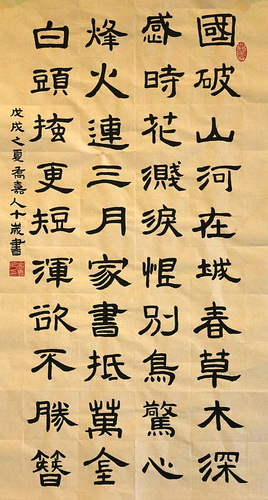 國破山河在城春草木深
感時花濺淚恨別鳥驚心
烽火連三月家書抵萬金
白頭搔更短渾欲不勝簪
戊戌之夏喬嘉人十歲書